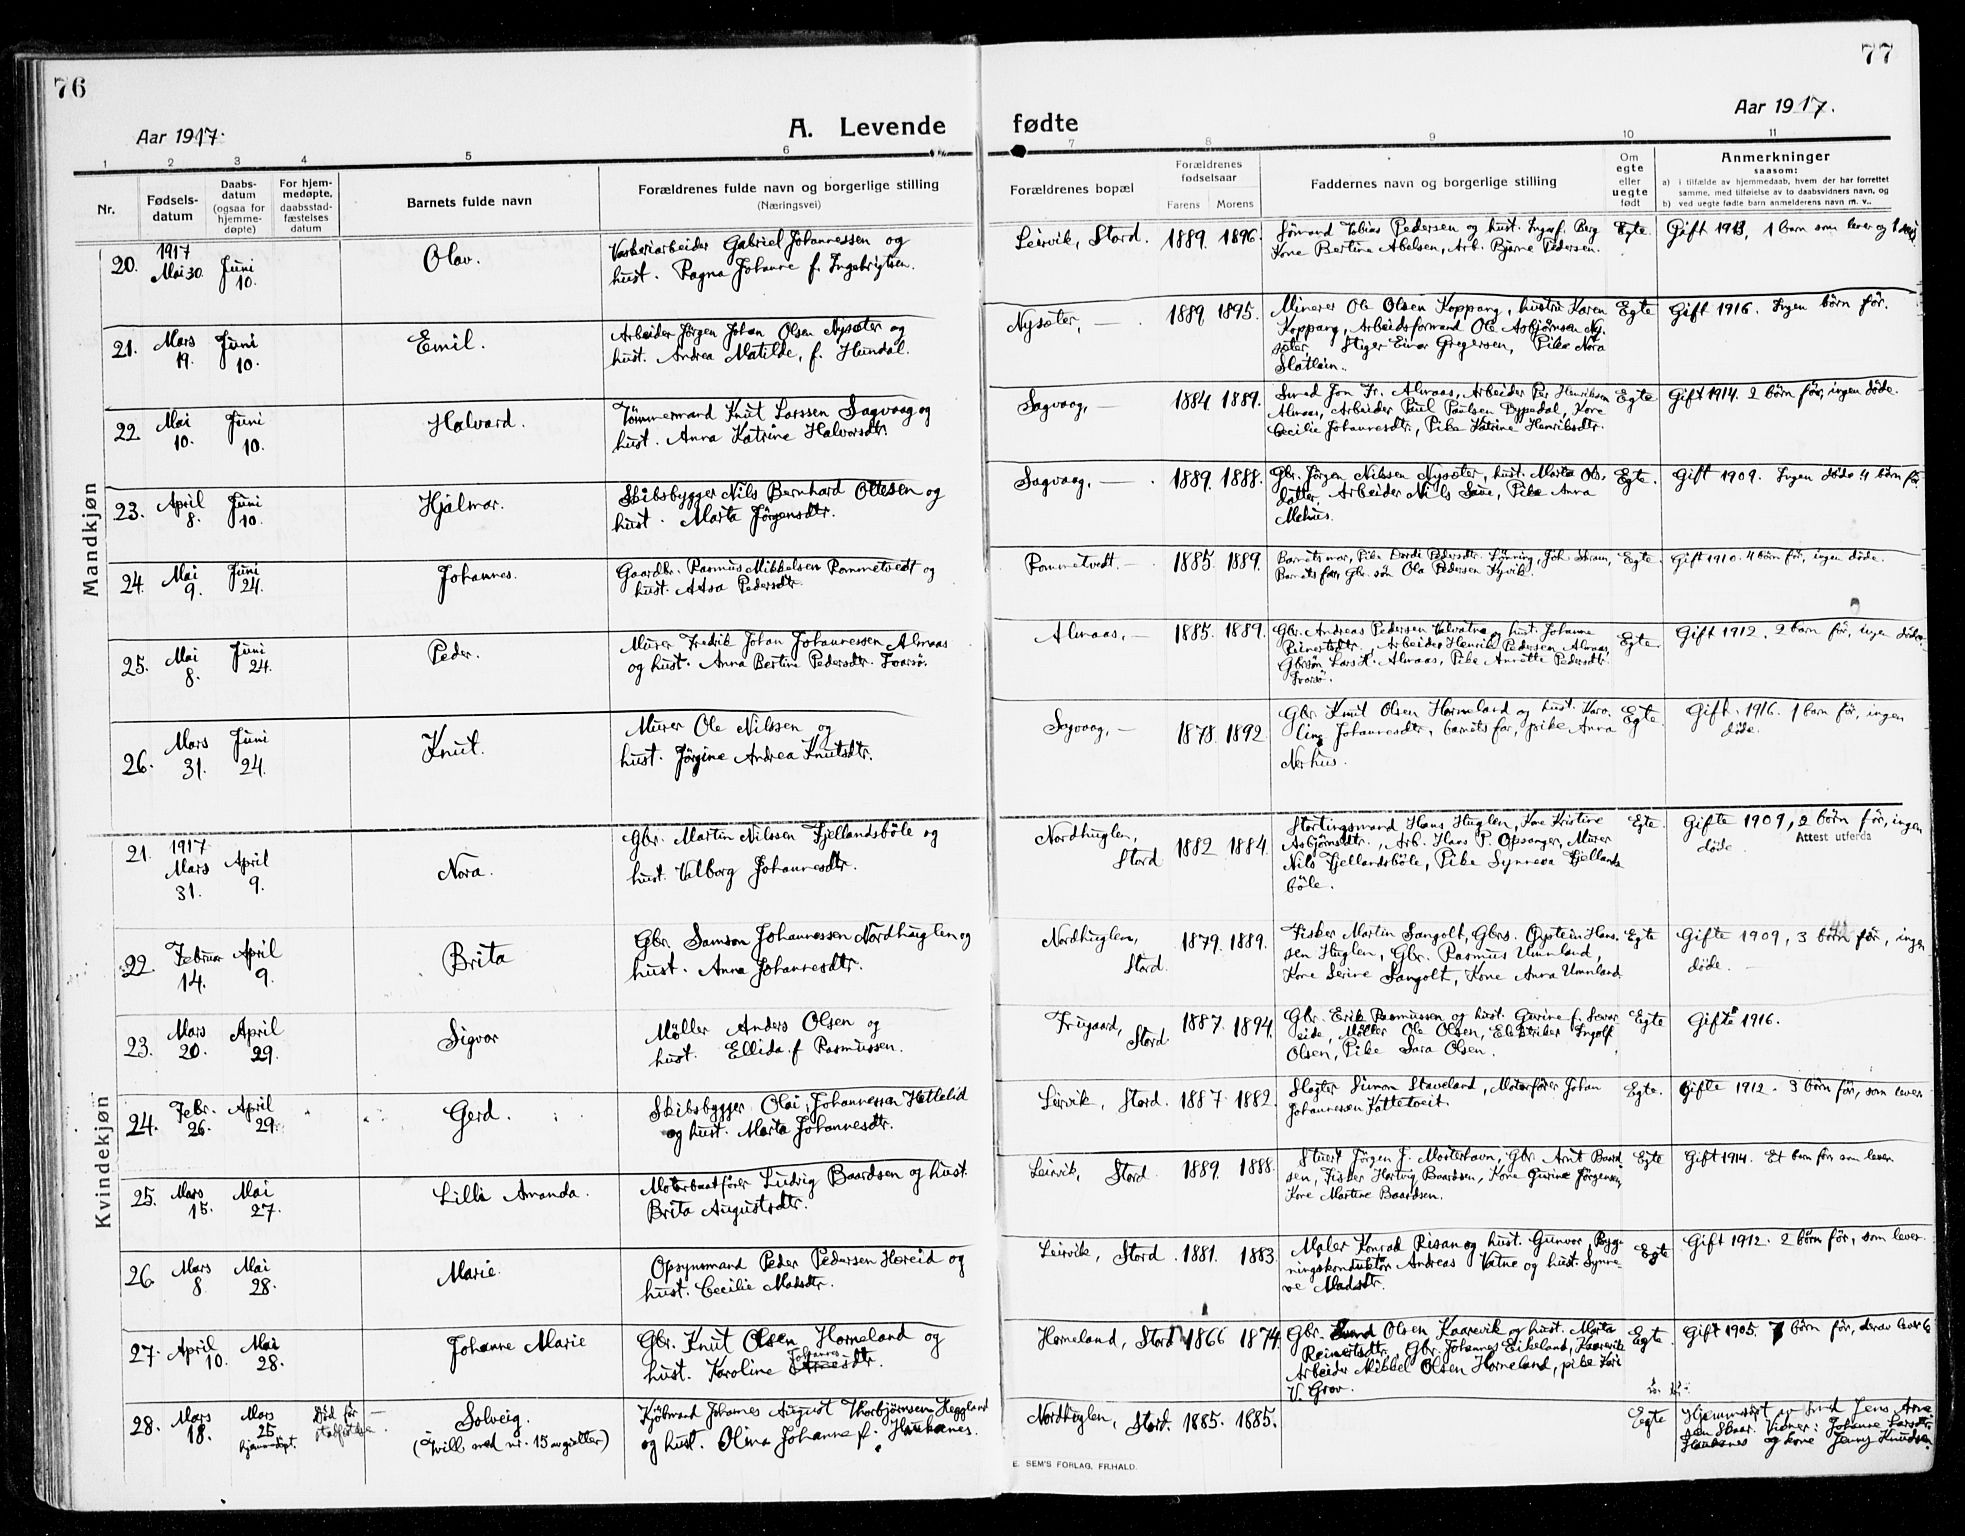 76
77
Aar 1917.
A. Levende fødte
Aar 1917.
1 2 3 4 5 6 7 8 9 10 11
Nr.
Fødsels-
datum
Daabs-
datum
(ogsaa for
hjemme-
døpte)
For hjem-
medøpte,
daabsstad-
fæstelses
datum
Barnets fulde navn
Forældrenes fulde navn og borgerlige stilling
(Næringsvei)
Forældrenes bopæl
Forældrenes
fødselsaar
Farens Morens
Faddernes navn og borgerlige stilling
Om
egte
eller
uegte
født
Anmerkninger
saasom:
a) i tilfælde av hjemmedaab, hvem der har forrettet
samme, med tilføielse av to daabsvidners navn, og
b) ved uegte fødte barn anmelderens navn m. v..
Mandkjøn
20. 1917 Mai 30. Juni 10. Olav.
Gabriel Johannessen og
hust. Ragna Johanne f. Ingebrigtsen.
Leirvik, Stord. 1889. 1896.
Tobias Pedersen og hust. Berg
Kone Bertine Abelsen, Arb. Bjarne Pedersen.
Egte. Gift 1913, 1 barn som lever og 1
21. Mars 19. Juni 10. Emil.
Arbeider Jörgen Johan Olsen Nysæter og
hust. Andrea Matilde, f. Hundal.
Nysæter, — . 1889 1895.
Minerer Ole Olsen Koppang, hustru Karen
Koppang, Arbeidsformand Ole Asbjørnsen Ny-
sæter, Stiger Einar Gregersen, Pike Nora
Slatlein.
Egte Gift 1916. Ingen børn før.
22. Mai 10. Juni 10. Halvard.
Tømmermand Knut Larssen Sagvaag og
hust. Anna Katrine Halvorsdtr.
Sagvaag, — 1884 1889.
Smed Jon Fr. Almaas, Arbeider Per Henriksen
Almaas, Arbeider Paul Paulsen Bypedal, Kone
Cecilie Johannesdtr., Pike Katrine Henriksdtr.
Egte Gift 1914. 2 børn før, ingen døde.
23. April 8. Juni 10. Hjalmar.
Skibsbygger Nils Bernhard Ottesen og
hust. Marta Jørgensdtr.
Sagvaag, — . 1889. 1888.
Gbr. Jørgen Nilsen Nysæter, hust. Marta Ols-
datter, Arbeider Nils Saue, Pike Anna
Mehus.
Egte. Gift 1909. Ingen døde 4 børn før
24. Mai 9. Juni 24. Johannes.
Gaardbr. Rasmus Mikkelsen Rommetvedt og
hust. Aasa Pedersdtr.
Rommetvedt. — 1885. 1889.
Barnets mor, Pike Dordi Pedersdtr. Lønning, Joh.
Barnets far, Gbr. søn Ola Pedersen Kyvik.
Egte. Gift 1910. 4 børn før, ingen døde.
25. Mai 8. Juni 24. Peder.
Murer Fredrik Johan Johannessen Almaas
og hust. Anna Bertine Pedersdtr. Ivarsø.
Almaas, — 1885. 1889.
Gbr. Andreas Pedersen Valvatne og hust. Johanne
Reinertsdtr., Arbeider Henrik Pedersen Almaas,
Gbrsøn Lars H. Almaas, Pike Annette Pedersdtr.
Ivarsø.
Egte Gift 1912. 2 barn før, ingen døde.
26. Mars 31. Juni 24. Knut.
Murer Ole Nilssen og
hust. Jørgine Andrea Knutsdtr.
Sagvaag, — 1878. 1892
Gbr. Knut Olsen Horneland og hust. Karo-
line Johannesdtr., barnets far, pike Anna
Nerhus.
Egte Gift. 1916. 1 barn før, ingen
døde.
Kvindekjøn
21. 1917 Mars 31. April 9. Nora.
Gbr. Martin Nilssen Fjellandsbøle og
hust. Valborg Johannesdtr.
Nordhuglen, Stord 1882 1884.
Stortingsmand Hans Huglen, Kone Kristine
Asbjørnsdtr., Arb. Hans P. Opsanger, Murer
Nils Fjellandsbøle, Pike Synneva Fjellands-
bøle.
Egte. Gifte 1909, 2 børn før, ingen
døde. Attest utferda
22. Februar 14. April 9. Brita
Gbr. Samson Johannessen Nordhuglen og
hust. Anna Johannesdtr.
Nordhuglen, Stord. 1879. 1889.
Fisker Martin Sangolt, Gbrs. Øystein Hans-
sen Huglen, Gbr. Rasmus Unneland,
Kone Serine Sangolt, Kone Anna Unneland.
Egte Gifte 1909, 3 børn før, ingen
døde. —
23. Mars 20. April 29. Sigvor
Møller Anders Olsen og
hust. Ellida f. Rasmussen.
Frugaard, Stord 1887. 1894.
Gbr. Erik Rasmussen og hust. Gurine f. Sævar-
eide, Møller Ole Olsen, Elektriker Ingolf
Olsen, Pike Sara Olsen.
Egte Gifte 1916.
24. Febr. 26. April 29. Gerd.
Skibsbygger Olai Johannessen Hetlelid
og hust. Marta Johannesdtr.
Leirvik, Stord. 1887. 1882.
Slagter Simon Staveland, Motorfører Johan
Johannessen Kattetveit.
Egte. Gifte 1912. 3 børn før, som lever
25. Mars 15. Mai 27. Lilli Amanda.
Motorbaatfører Ludvig Baardsen og hust
Brita Augustsdtr.
Leirvik, Stord. 1889. 1888.
Stuert Jörgen J. Mortehavn, Gbr. Arnt Baard-
sen, Fisker Hartvig Baardsen, Kone Gurine Jørgensen,
Kone Martine Baardsen.
Egte Gift 1914. Et barn før som lever.
26. Mars 8. Mai 28. Marie.
Opsynsmand Peder Pedersen Hæreid og
hust. Cecilie Madsdtr.
Leirvik, Stord. 1881. 1883.
Maler Konrad Risan og hust. Gunvor, Byg-
ningskonduktør Andreas Vatne og hust. Synne-
ve Madsdtr.
Egte Gift 1912. 2 børn før, som lever.
27. April 10. Mai 28. Johanne Marie
Gbr. Knut Olsen Horneland og
hust. Karoline Johannesdtr.
Horneland, Stord 1866 1874.
Gbr. Olsen Kaarevik og hust. Marta
Reinertsdtr., Gbr. Johannes Eikeland, Kaarevik
Arbeider Mikkel Olsen Horneland, pike Kari
V. Grov.
Egte. Gift 1905. 7 børn før, derav lever 6
28. Mars 18. Mars 25 hjemmedøpt. Død før stadfæstelse. — Solveig.
(Tvill. med nr. 15 av gutter)
Kjøbmand Johannes August Thorbjørnsen Heggland
og hust. Olina Johanne f. Haukanes.
Nordhuglen, Stord. 1885. 1885.
Egte Hjemmedøpt av Smed Jens Arne-
sen Skaar. Vidner: Johanne Larsdtr
Haukanes og kone Jenny Knudsen.
E. SEM'S FORLAG, FR.HALD.